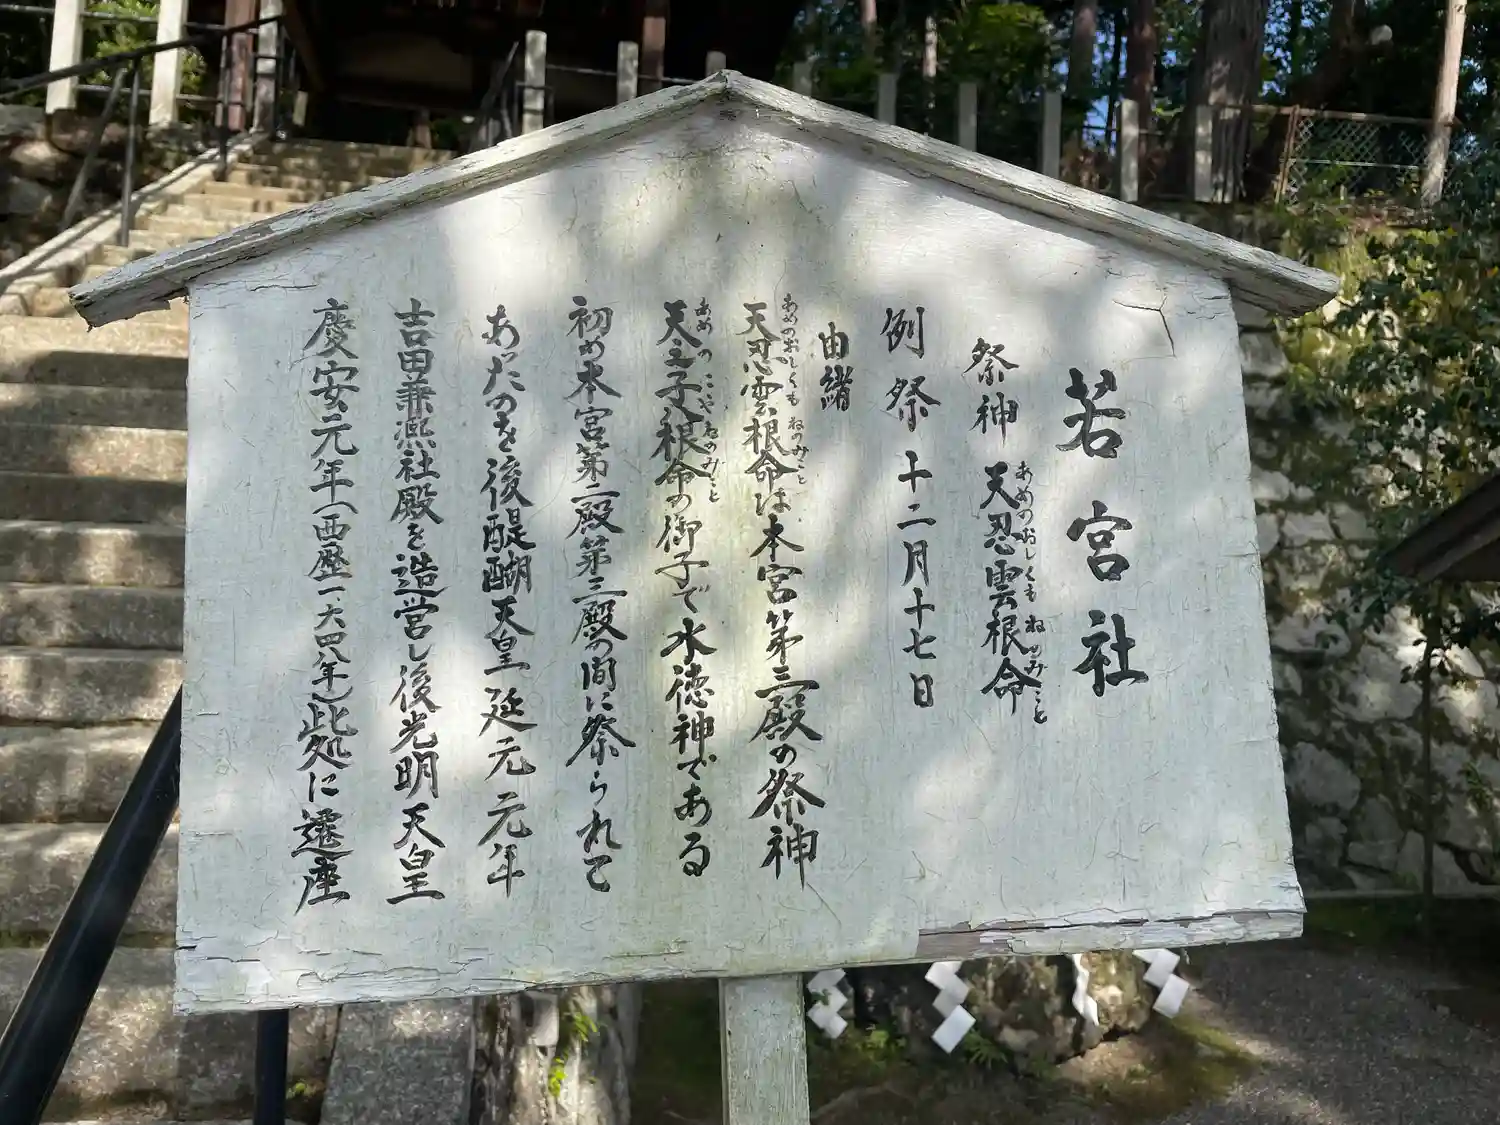 若宮社
祭神 天忍雲根命
あめのおしくもねのみこと
例祭 十二月十七日
由緒
あめのおしくもねのみこと
天忍雲根命は本宮第三殿の祭神
あめのこやねのみこと
天之子八根命の御子で水徳神である
初め本宮第二殿第三殿の間に祭られて
あったのを後醍醐天皇延元元年
吉田兼熙社殿を造営し後光明天皇
慶安元年(西歴一六四八年)此処に遷座